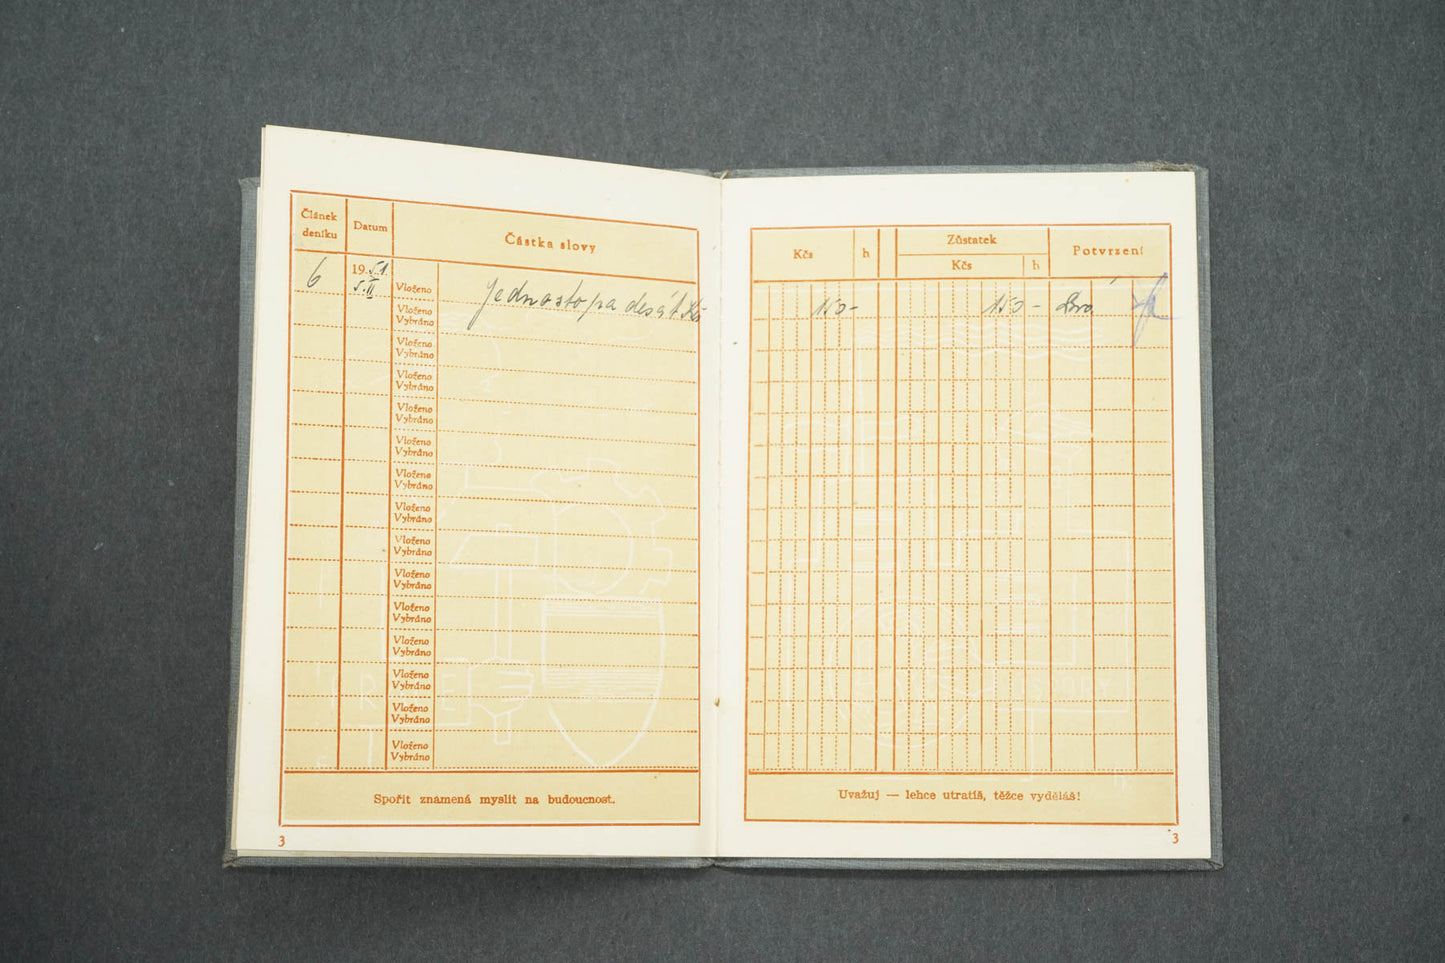 Článek deníku
Datum
Částka slovy
6
19.51.
5.II
Vloženo
jednostopadesát Kčs
Vloženo
Vybráno
Vloženo
Vybráno
Vloženo
Vybráno
Vloženo
Vybráno
Vloženo
Vybráno
Vloženo
Vybráno
Vloženo
Vybráno
Vloženo
Vybráno
Vloženo
Vybráno
Vloženo
Vybráno
Vloženo
Vybráno
Vloženo
Vybráno
Vloženo
Vybráno
Vloženo
Vybráno
Spořit znamená myslit na budoucnost.
3
Kčs
h
Zůstatek
Kčs
h
Potvrzení
150- 150-
Uvažuj — lehce utratíš, těžce vyděláš!
3